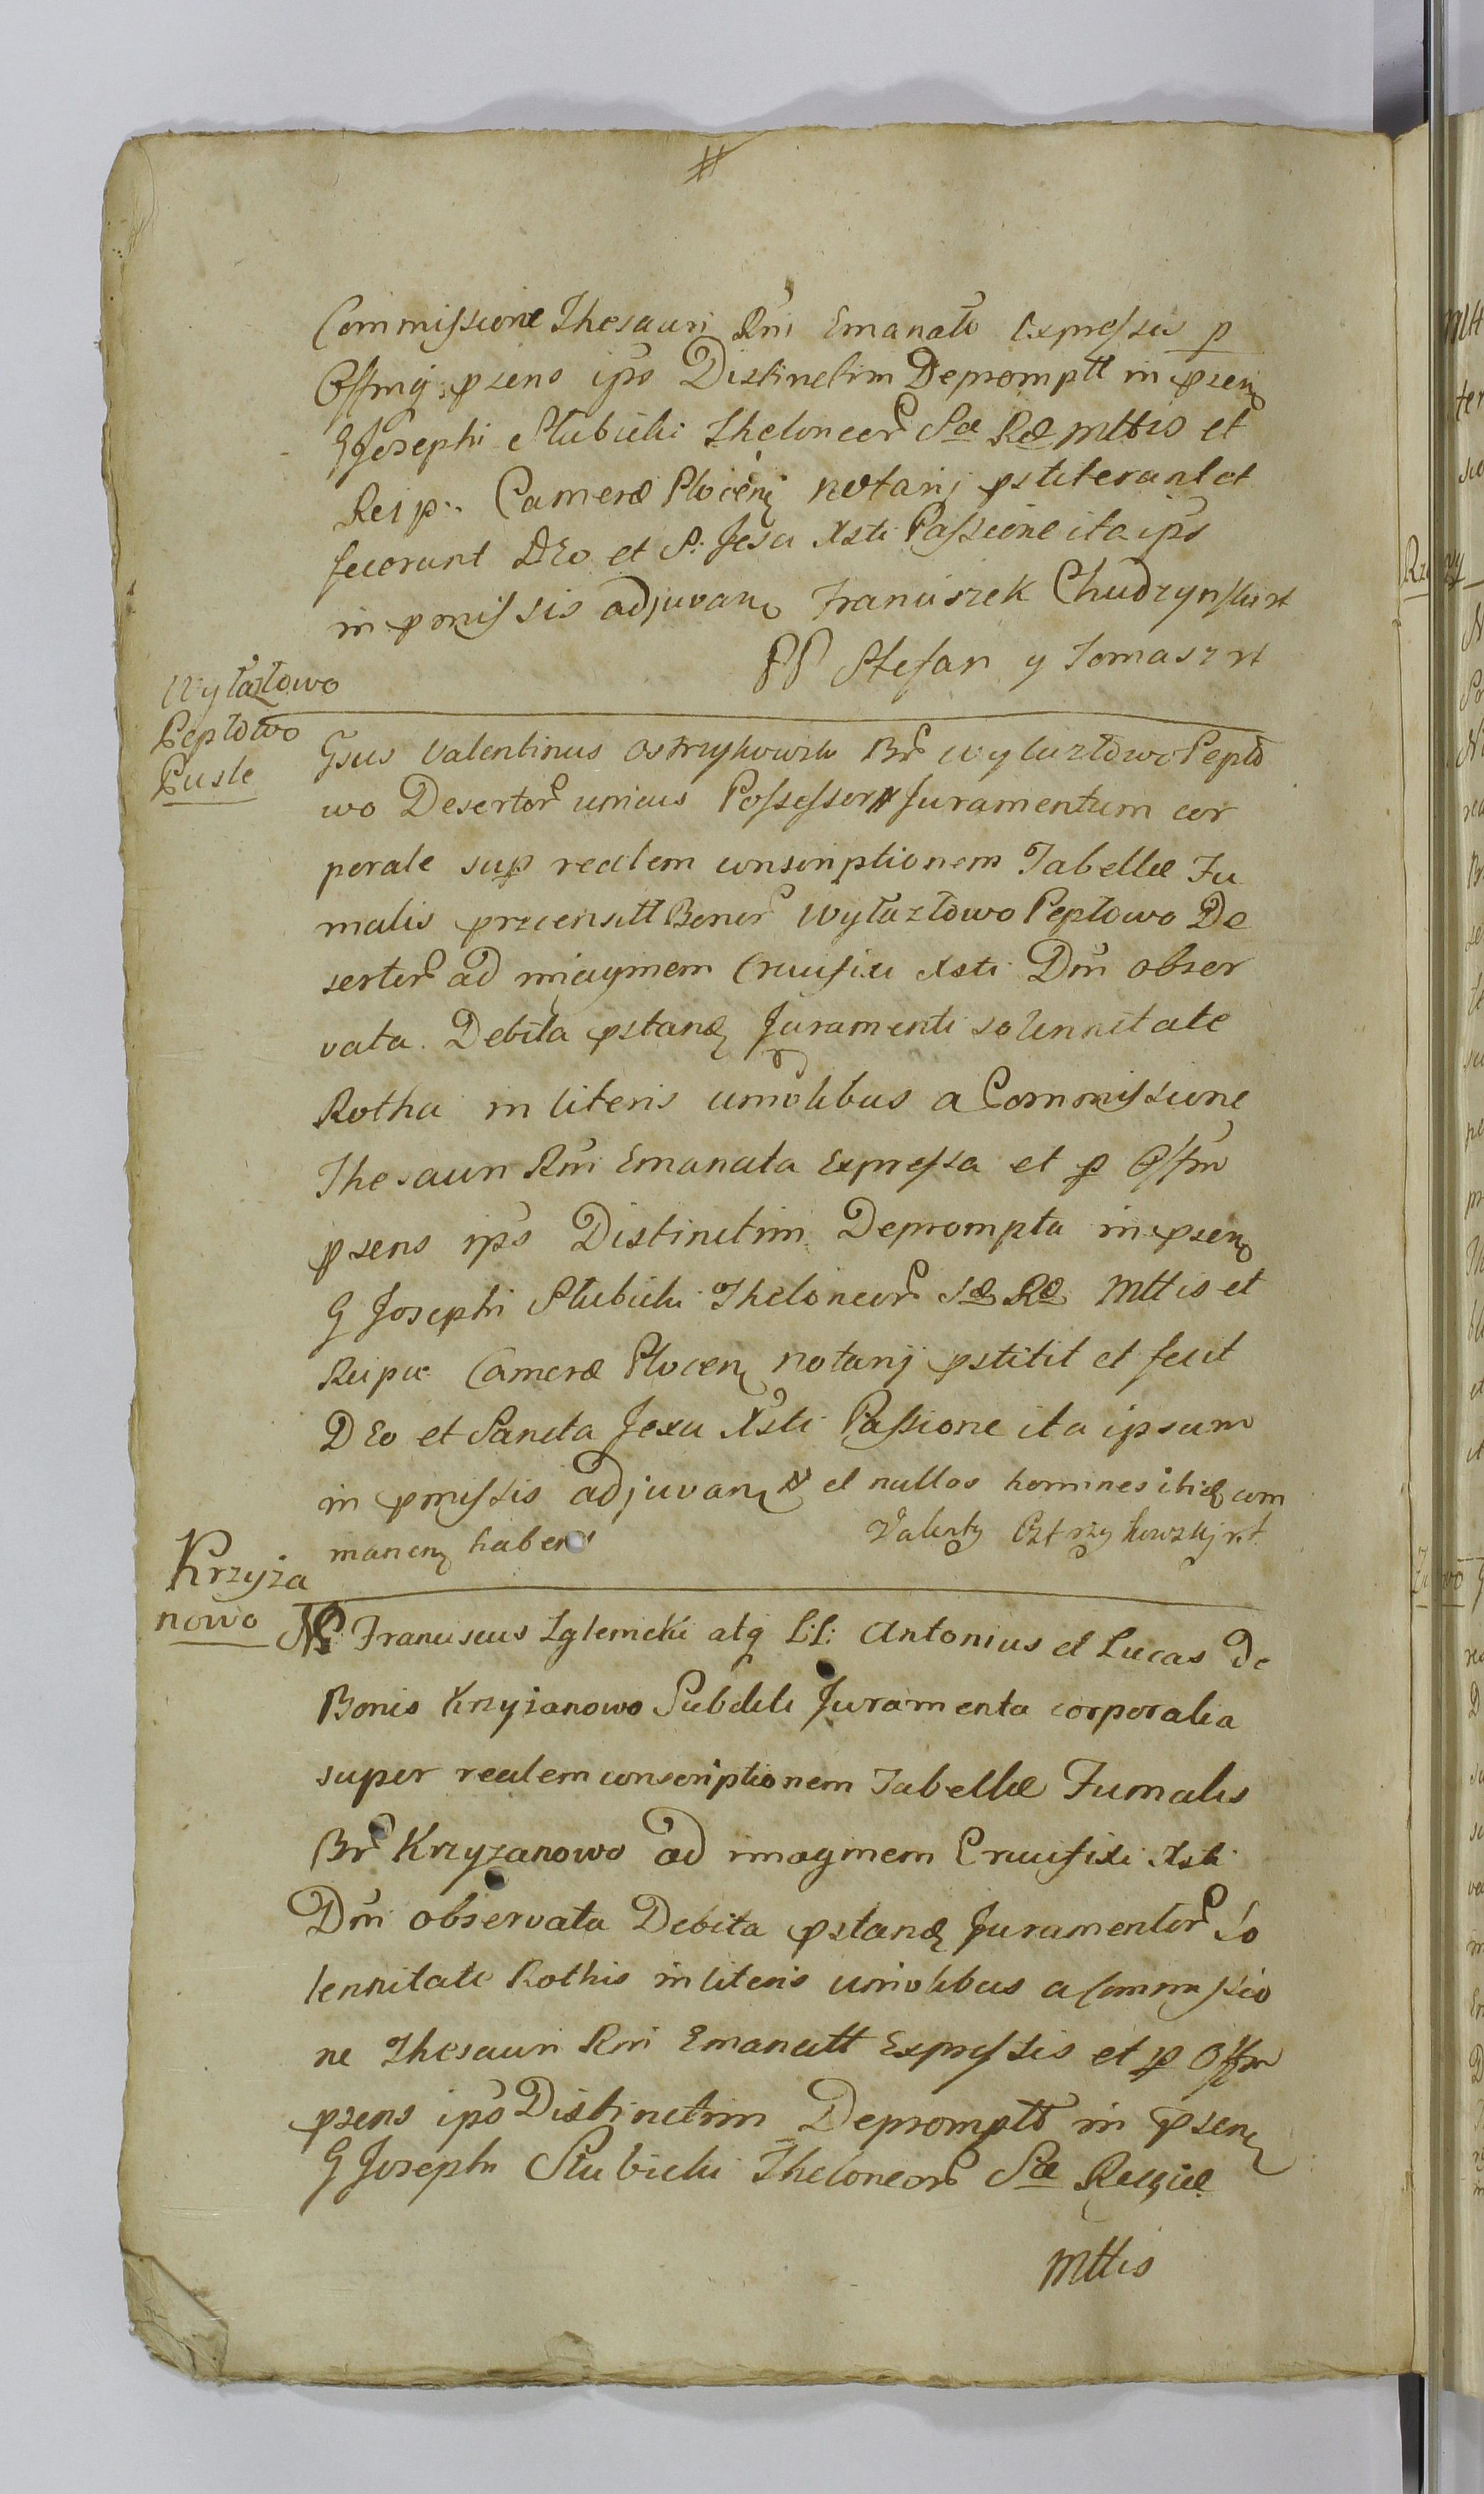 #
Commissione Thesauri Rni Emanatis Expressis p
Offmq psens ipso Distinctim Depromptt in psen
G Josephi Slubicki Theloneor Sæ Ræ Mttis et
Reip: Cameræ Plocen notarij pstiterunt et
fecerunt DEo et S: Jesu Xsti Passione ita ipso
in pmissis adjuvan Franciszek Chudzynski rt
PP Stefan y Tomasz rt
Wytazłowo
Pepłowo
Puste
Gsus Valentinus Ostrzykowski Br Wytazłowo Pepło
wo Desertor unicus Possessor Juramentum cor
porale sup realem conscriptionem Tabellæ Fu
malis præcensitt Bonor Wytazłowo Pepłowo De
sertor ad imaginem Crucifixi Xsti Dni obser
vata Debita pstandæ Juramenti solennitate
Rotha in literis univlibus a Commissione
Thesauri Rni Emanata Expressa et p Offm
psens ipso Distinctim Deprompta in psen
G Josephi Slubicki Theloneor Sæ Ræ Mttis et
Reipcæ Cameræ Plocen notarij pstitit et fecit
DEo et Sancta Jesu Xsti Passione ita ipsum
in pmissis adjuvan et nullos homines ibid com
manen haber Valenty Ostrzykowskij rt
Krzyża
nowo
N Franciscus Zglenicki atq L:L: Antonius et Lucas De
Bonis Krzyżanowo Subditi Juramenta corporalia
super realem conscriptionem Tabellæ Fumalis
Br Krzyzanowo ad imaginem Crucifixi Xsti
Dni observata Debita pstandæ Juramentor So
lennitate Rothis in literis univlibus a Commissio
ne Thesauri Rni Emanatt Expressis et p Offm
psens ipso Distinctim Depromptt in psen
G Josephi Slubicki Theloneor Sæ Regiæ
Mttis